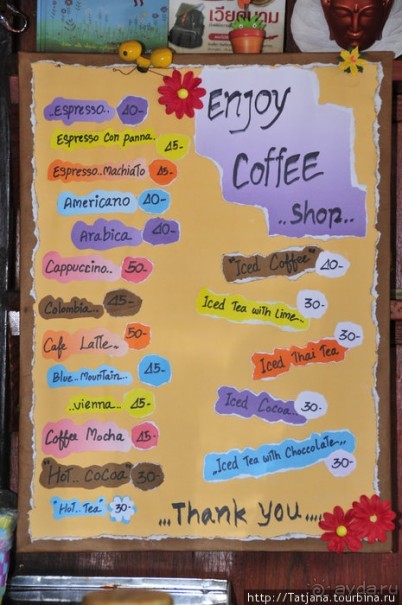 เวียดนาม
Enjoy
Coffee
..Shop..
..Espresso.. 40-
Espresso Con panna.. 45-
Espresso..Machiato 45-
Americano 40-
Arabica 40-
Cappuccino.. 50-
Colombia... 45-
Cafe Latte.. 50-
Blue..Mountain.. 45-
..Vienna.. 45-
Coffee Mocha 45-
"Hot..Cocoa" 30-
"Hot..Tea" 30-
"Iced Coffee" 40-
Iced Tea with Lime.. 30-
Iced Thai Tea 30-
Iced Cocoa.. 30-
..Iced Tea with Chocolate,, 30-
...Thank you....
ayda.ru
http://Tatjana.tourbina.ru